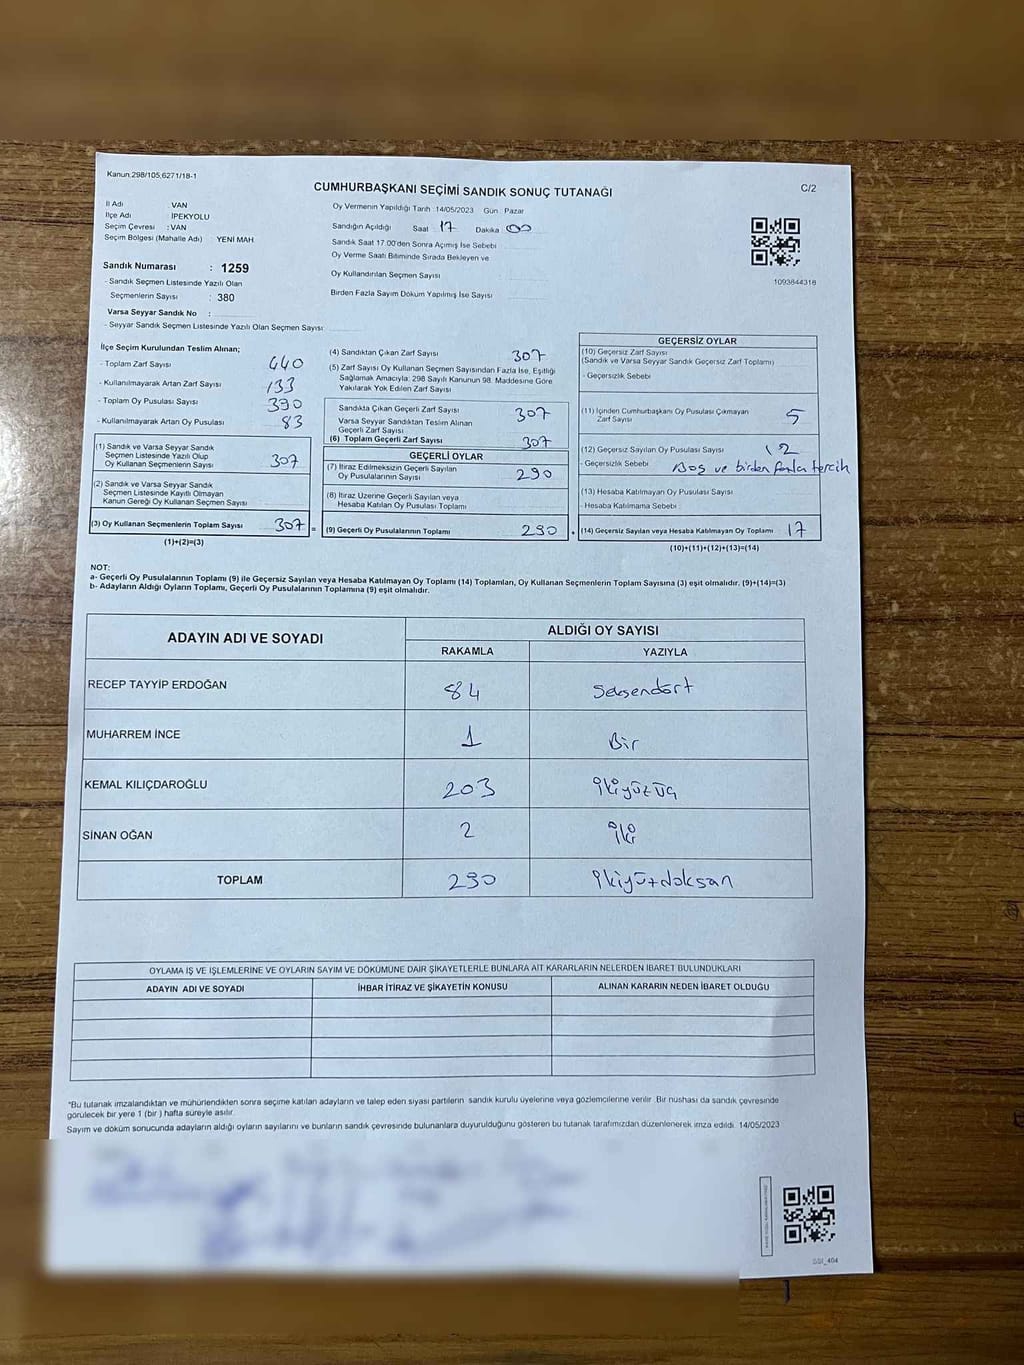 Kanun 298/105,6271/18-1
C/2
CUMHURBAŞKANI SEÇİMİ SANDIK SONUÇ TUTANAĞI
İl Adı : VAN
İlçe Adı : İPEKYOLU
Seçim Çevresi : VAN
Seçim Bölgesi (Mahalle Adı) : YENİ MAH.
Sandık Numarası : 1259
- Sandık Seçmen Listesinde Yazılı Olan
Seçmenlerin Sayısı : 380
Varsa Seyyar Sandık No :
- Seyyar Sandık Seçmen Listesinde Yazılı Olan Seçmen Sayısı:
Oy Vermenin Yapıldığı Tarih :14/05/2023 Gün : Pazar
Sandığın Açıldığı Saat 17 Dakika 00
Sandık Saat 17.00'den Sonra Açımış İse Sebebi
Oy Verme Saati Bitiminde Sırada Bekleyen ve
Oy Kullandırılan Seçmen Sayısı
Birden Fazla Sayım Döküm Yapılmış İse Sayısı
1093844318
İlçe Seçim Kurulundan Teslim Alınan;
- Toplam Zarf Sayısı 440
- Kullanılmayarak Artan Zarf Sayısı 133
- Toplam Oy Pusulası Sayısı 390
- Kullanılmayarak Artan Oy Pusulası 83
(1) Sandık ve Varsa Seyyar Sandık
Seçmen Listesinde Yazılı Olup
Oy Kullanan Seçmenlerin Sayısı 307
(2) Sandık ve Varsa Seyyar Sandık
Seçmen Listesinde Kayıtlı Olmayan
Kanun Gereği Oy Kullanan Seçmen Sayısı
(3) Oy Kullanan Seçmenlerin Toplam Sayısı 307 =
(1)+(2)=(3)
(4) Sandıktan Çıkan Zarf Sayısı 307
(5) Zarf Sayısı Oy Kullanan Seçmen Sayısından Fazla İse, Eşitliği
Sağlamak Amacıyla; 298 Sayılı Kanunun 98. Maddesine Göre
Yakılarak Yok Edilen Zarf Sayısı
Sandıkta Çıkan Geçerli Zarf Sayısı 307
Varsa Seyyar Sandıktan Teslim Alınan
Geçerli Zarf Sayısı
(6) Toplam Geçerli Zarf Sayısı 307
GEÇERLİ OYLAR
(7) İtiraz Edilmeksizin Geçerli Sayılan
Oy Pusulalarının Sayısı 290
(8) İtiraz Üzerine Geçerli Sayılan veya
Hesaba Katılan Oy Pusulası Toplamı
(9) Geçerli Oy Pusulalarının Toplamı 290 +
GEÇERSİZ OYLAR
(10) Geçersiz Zarf Sayısı
(Sandık ve Varsa Seyyar Sandık Geçersiz Zarf Toplamı)
- Geçersizlik Sebebi
(11) İçinden Cumhurbaşkanı Oy Pusulası Çıkmayan
Zarf Sayısı 5
(12) Geçersiz Sayılan Oy Pusulası Sayısı 12
- Geçersizlik Sebebi Boş ve birden fazla tercih
(13) Hesaba Katılmayan Oy Pusulası Sayısı
- Hesaba Katılmama Sebebi
(14) Geçersiz Sayılan veya Hesaba Katılmayan Oy Toplamı 17
(10)+(11)+(12)+(13)=(14)
NOT:
a- Geçerli Oy Pusulalarının Toplamı (9) ile Geçersiz Sayılan veya Hesaba Katılmayan Oy Toplamı (14) Toplamları, Oy Kullanan Seçmenlerin Toplam Sayısına (3) eşit olmalıdır. (9)+(14)=(3)
b- Adayların Aldığı Oyların Toplamı, Geçerli Oy Pusulalarının Toplamına (9) eşit olmalıdır.
ADAYIN ADI VE SOYADI ALDIĞI OY SAYISI
RAKAMLA YAZIYLA
RECEP TAYYİP ERDOĞAN 84 Seksendört
MUHARREM İNCE 1 Bir
KEMAL KILIÇDAROĞLU 203 İkiyüzüç
SİNAN OĞAN 2 iki
TOPLAM 290 ikiyüzdoksan
OYLAMA İŞ VE İŞLEMLERİNE VE OYLARIN SAYIM VE DÖKÜMÜNE DAİR ŞİKAYETLERLE BUNLARA AİT KARARLARIN NELERDEN İBARET BULUNDUKLARI
ADAYIN ADI VE SOYADI İHBAR İTİRAZ VE ŞİKAYETİN KONUSU ALINAN KARARIN NEDEN İBARET OLDUĞU
*Bu tutanak imzalandıktan ve mühürlendikten sonra seçime katılan adayların ve talep eden siyasi partilerin sandık kurulu üyelerine veya gözlemcilerine verilir. Bir nushası da sandık çevresinde
görülecek bir yere 1 (bir ) hafta süreyle asılır.
Sayım ve döküm sonucunda adayların aldığı oyların sayılarını ve bunların sandık çevresinde bulunanlara duyurulduğunu gösteren bu tutanak tarafımızdan düzenlenerek imza edildi. 14/05/2023
SSI_404